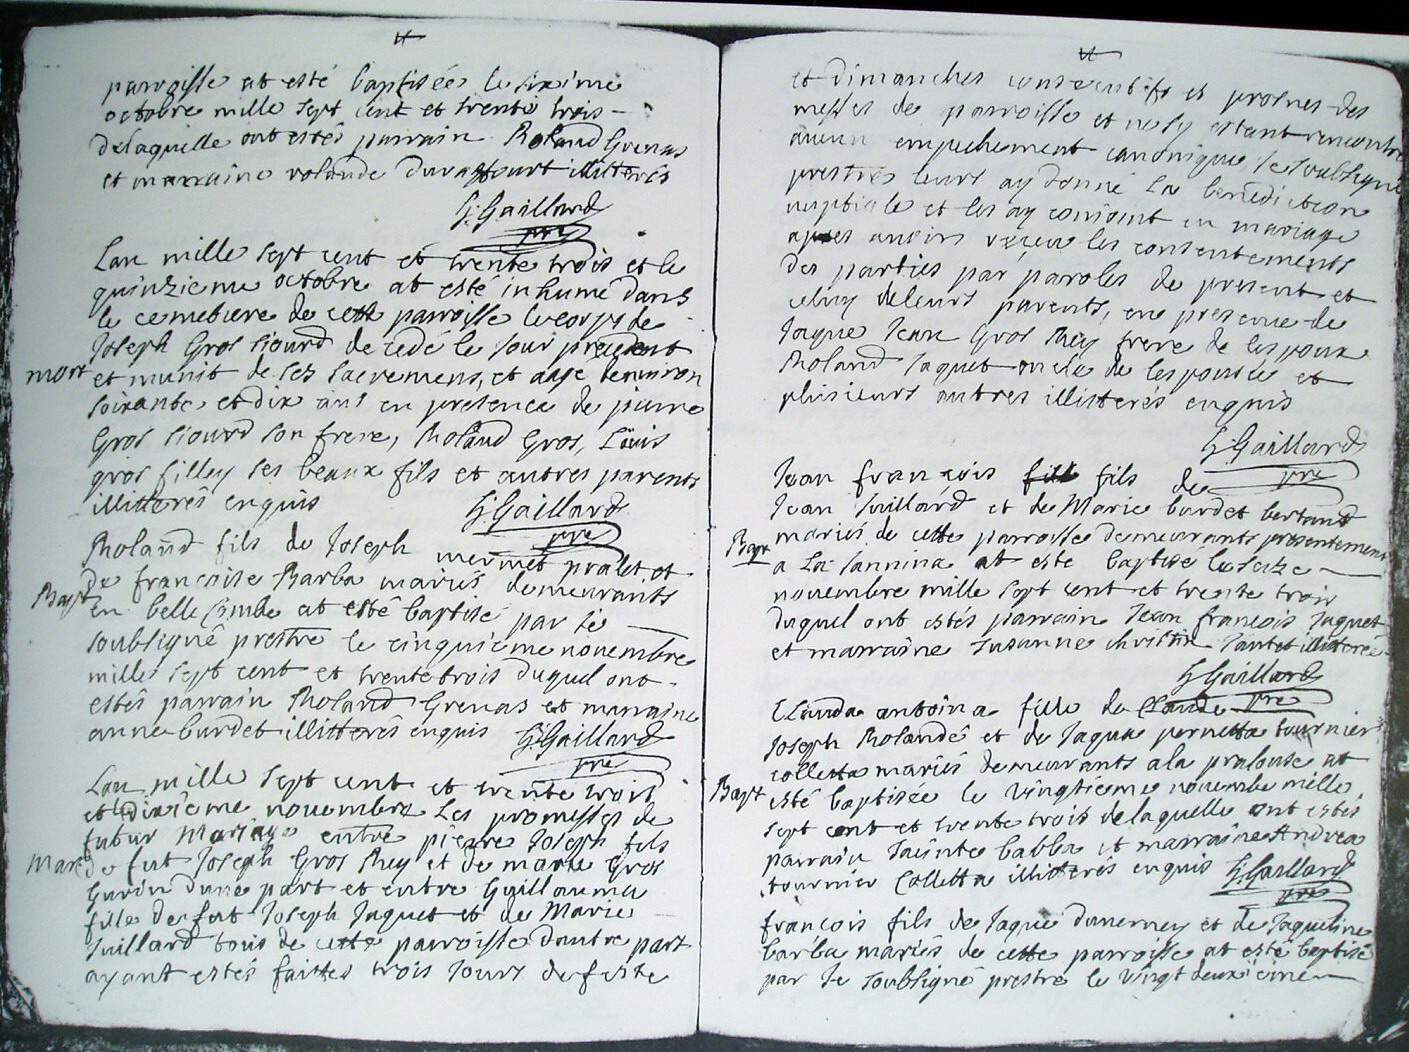 parroisse at esté baptisée le sixième
octobre mille sept cent et trente trois
de laquelle ont estés parrain Roland Grenas
et marraine rolande illitterés
G: Gaillard
pre
Lan mille sept cent et trente trois et le
quinzieme octobre at esté inhumé dans
le cemetiere de cette parroisse le corps de
Joseph Gros siourd decedé le jour precedent
mort
et munit de ses sacremens, et agé denviron
soixante et dix ans en presence de pierre
Gros siourd son frere, Roland Gros, Louis
gros filley ses beaux fils et autres parents
illitterés enquis
G: Gaillard
pre
Roland fils de Joseph mermet pralet et
Bapt
de francoise Barba mariés demeurants
en belle Combe at esté baptisé par Je
soubsigné prestre le cinquieme novembre
mille sept cent et trente trois duquel ont
estés parrain Roland Grenas et marraine
anne burdet illitterés enquis
G: Gaillard
pre
Lan mille sept cent et trente trois
et le dixième novembre Les promesses de
futur Mariage entre pierre Joseph fils
Mar
de fut Joseph Gros Rey et de marie Gros
Gurin dune part et entre Guillauma
fille de fut Joseph Jaguet et de Marie
Juillard tous de cette parroisse dautre part
ayant estés faittes trois Jours de feste
et dimanches consecutifs es prosnes des
messes de parroisse et ne sy estant rencontré
aucun empechement canonique Je soubsigné
prestres leurs ay donné La benediction
nuptiale et les ay conjoint en mariage
apres avoirs reçeu les consentements
des parties par paroles de present et
celuy de leurs parents, en presence de
Jaque Jean Gros Rey frere de lespoux
Roland Jaquet oncle de lespouse et
plusieurs autres illitterés enquis
G: Gaillard
pre
Jean françois fils de
Jean Juillard et de Marie burdet bertand
Bapt
mariés de cette parroisse demeurants presentement
a La Jannina at esté baptisé le seize
novembre mille sept cent et trente trois
duquel ont estés parrain Jean francois Juguet
et marraine Susanne christin illitteres
G Gaillard
pre
Clauda antoina fille de Claude
Joseph Rolande et de Jaqua pernetta tournier
colletta mariés demeurants a la pralouse at
Bapt
esté baptisée le vingtieme novembre mille
sept cent et trente trois de laquelle ont estés
parrain babba et marraine Andrea
tournier Colletta illitterés enquis
G: Gaillard
pre
francois fils de Jaque et de Jaqueline
barba mariés de cette parroisse at esté baptisé
par Je soubsigné prestre le vingt deuxieme